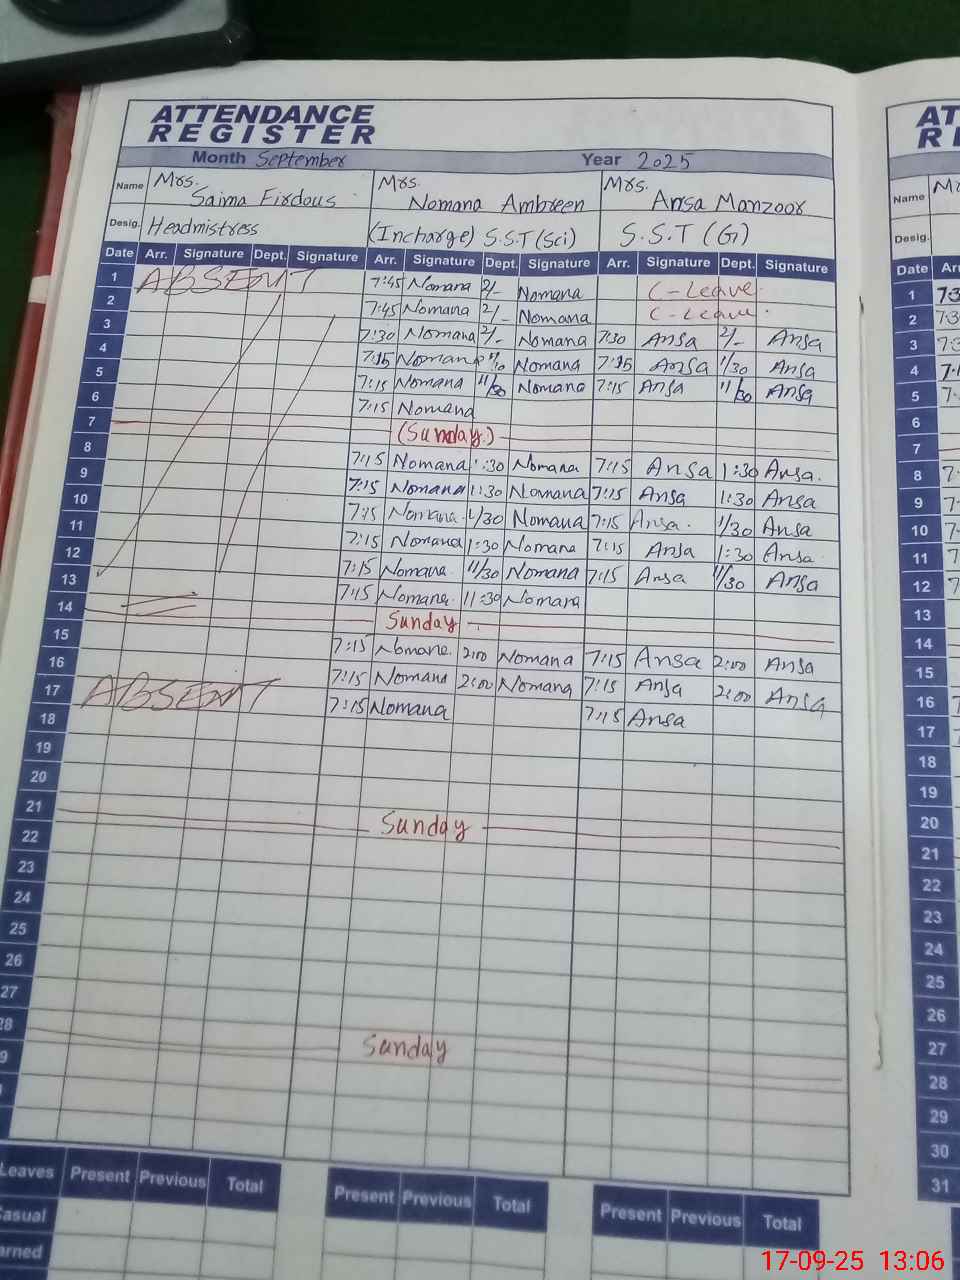 ATTENDANCE
REGISTER
Month September Year 2025
Name Mrs. Saima Firdous Mrs. Nomana Ambreen Mrs. Ansa Manzoor
Desig. Headmistress (Incharge) S.S.T (Sci) S.S.T (G)
Date Arr. Signature Dept. Signature Arr. Signature Dept. Signature Arr. Signature Dept. Signature
1 ABSENT 7:45 Nomana 2/- Nomana C-Leave.
2 7:45 Nomana 2/- Nomana C-Leave.
3 7:30 Nomana 2/- Nomana 7:30 Ansa 2/- Ansa
4 7:15 Nomana Nomana 7:15 Ansa 11/30 Ansa
5 7:15 Nomana 11/30 Nomana 7:15 Ansa 11/30 Ansa
6 7:15 Nomana
7 (Sunday)
8 7:15 Nomana 1:30 Nomana 7:15 Ansa 1:30 Ansa.
9 7:15 Nomana 1:30 Nomana 7:15 Ansa 1:30 Ansa
10 7:15 Nomana. 1/30 Nomana 7:15 Ansa. 1/30 Ansa
11 7:15 Nomana 1:30 Nomana 7:15 Ansa 1:30 Ansa.
12 7:15 Nomana. 11/30 Nomana 7:15 Ansa 11/30 Ansa
13 7:15 Nomana. 11:30 Nomana
14 Sunday
15 7:15 Nomana. 2:00 Nomana 7:15 Ansa 2:00 Ansa
16 7:15 Nomana 2:00 Nomana 7:15 Ansa 2:00 Ansa
17 ABSENT 7:15 Nomana 7:15 Ansa
18
19
20
21 Sunday
22
23
24
25
26
27
28 Sunday
9
Leaves Present Previous Total Present Previous Total Present Previous Total
Casual
arned
AT
RE
Name
Desig.
Date
1 7:3
2 7:3
3
4
5
6
7
8
9
10
11
12
13
14
15
16
17
18
19
20
21
22
23
24
25
26
27
28
29
30
31
17-09-25 13:06